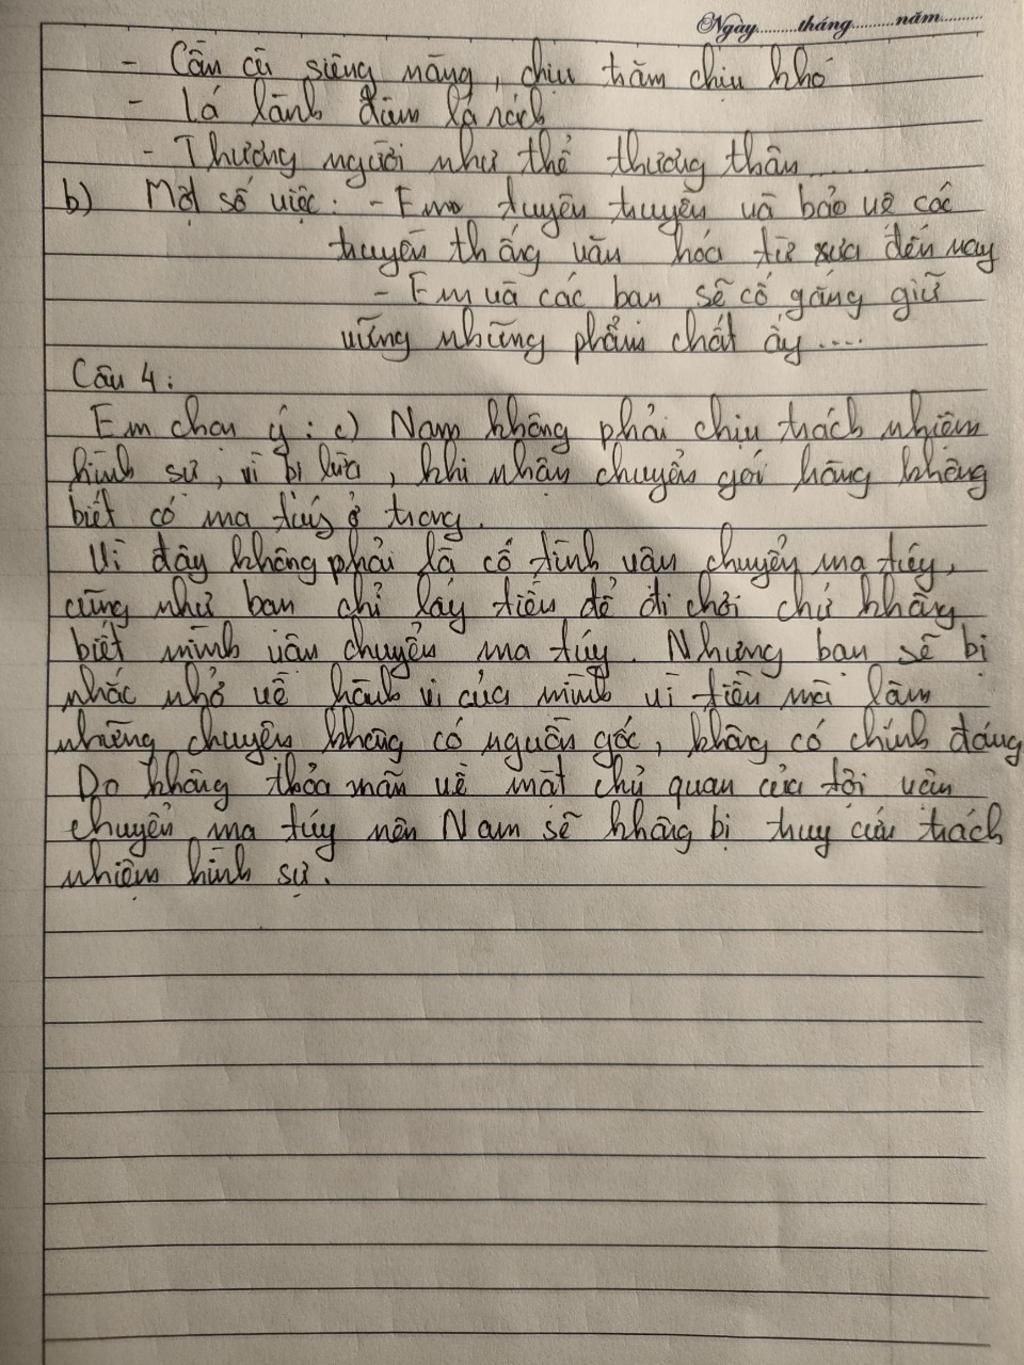 Ngày.........tháng..........năm..........
- Cần cù siêng năng, chịu thăm chịu khó
- Lá lành đùm lá rách
- Thương người như thể thương thân.....
b) Một số việc: - Em tuyên truyền và bảo vệ các
truyền thống văn hóa từ xưa đến nay
- Em và các bạn sẽ cố gắng giữ
vững những phẩm chất ấy ....
Câu 4:
Em chọn ý: c) Nam không phải chịu trách nhiệm
hình sự, vì bị lừa, khi nhận chuyển gói hàng không
biết có ma túy ở trong.
Vì đây không phải là cố tình vận chuyển ma túy,
cũng như bạn chỉ lấy tiền để đi chơi chứ không
biết mình vận chuyển ma túy. Nhưng bạn sẽ bị
nhắc nhở về hành vi của mình vì tiền mà làm
những chuyện không có nguồn gốc, không có chính đáng
Do không thỏa mãn về mặt chủ quan của tội vận
chuyển ma túy nên Nam sẽ không bị truy cứu trách
nhiệm hình sự.